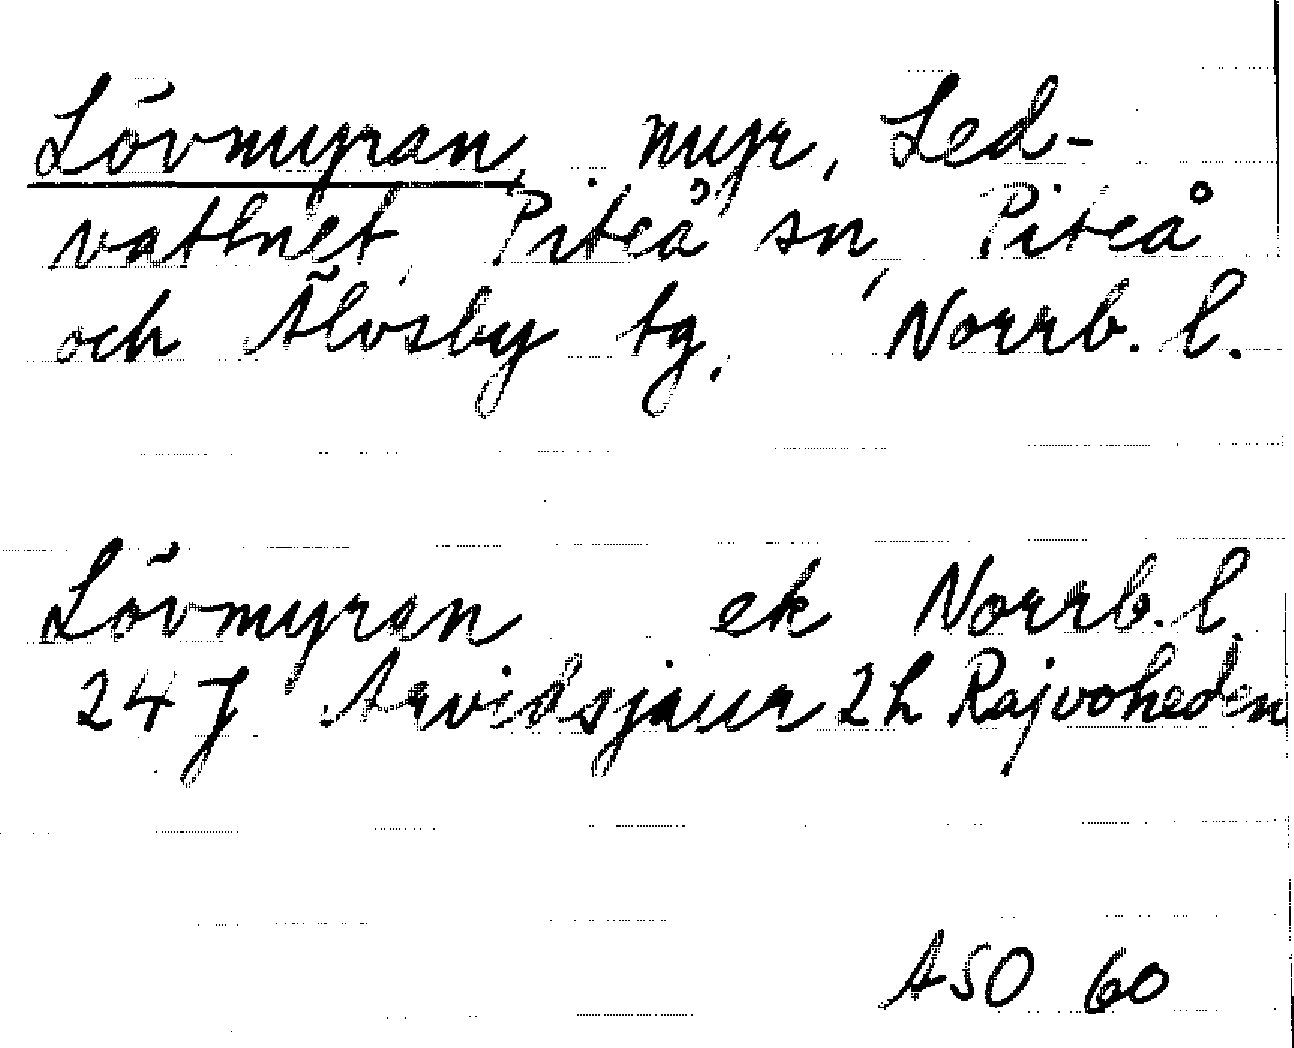 Lövmyran, myr, Led-
vattnet, Piteå sn, Piteå
och Älvsby tg, Norrb. l.
Lövmyran ek Norrb. l.
24 J Arvidsjaur 2h Rajvoheden
ASO 60